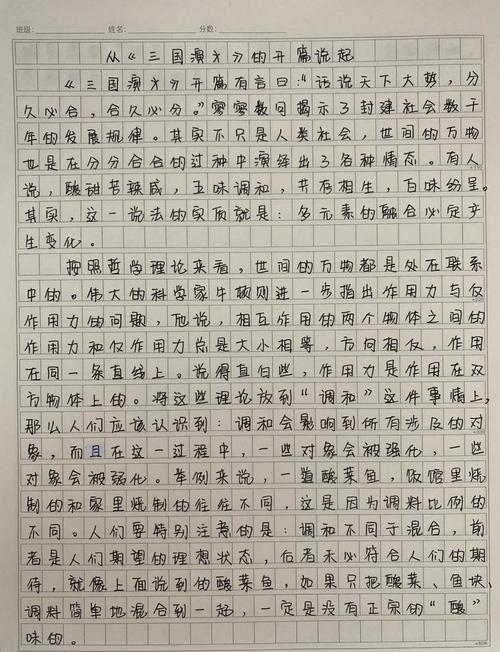 班级： 姓名： 分数：
从《三国演义》的开篇说起
《三国演义》开篇有言曰：“话说天下大势，分
久必合，合久必分。”寥寥数句揭示了封建社会数千
年的发展规律。其实不只是人类社会，世间的万物
也是在分分合合的过程中演绎出了各种情态。有人
说，酸甜苦辣咸，五味调和，共存相生，百味纷呈。
其实，这一说法的实质就是：多元素的融合必定产
生变化。
按照哲学理论来看，世间的万物都是处在联系
中的。伟大的科学家牛顿则进一步指出作用力与仅
作用力的问题，他说，相互作用的两个物体之间的
作用力和仅作用力总是大小相等，方向相反，作用
在同一条直线上。说得直白些，作用力是作用在双
方物体上的。将这些理论放到“调和”这件事情上，
那么人们应该认识到：调和会影响到所有涉及的对
象，而且在这一过程中，一些对象会被强化，一些
对象会被弱化。举例来说，一道酸菜鱼，饭馆里烧
制的和家里烧制的往往不同，这是因为调料比例的
不同。人们要特别注意的是：调和不同于混合，前
者是人们期望的理想状态，后者未必符合人们的期
待，就像上面说到的酸菜鱼，如果只把酸菜、鱼块、
调料简单地混合到一起，一定是没有正宗的“酸”
味的。